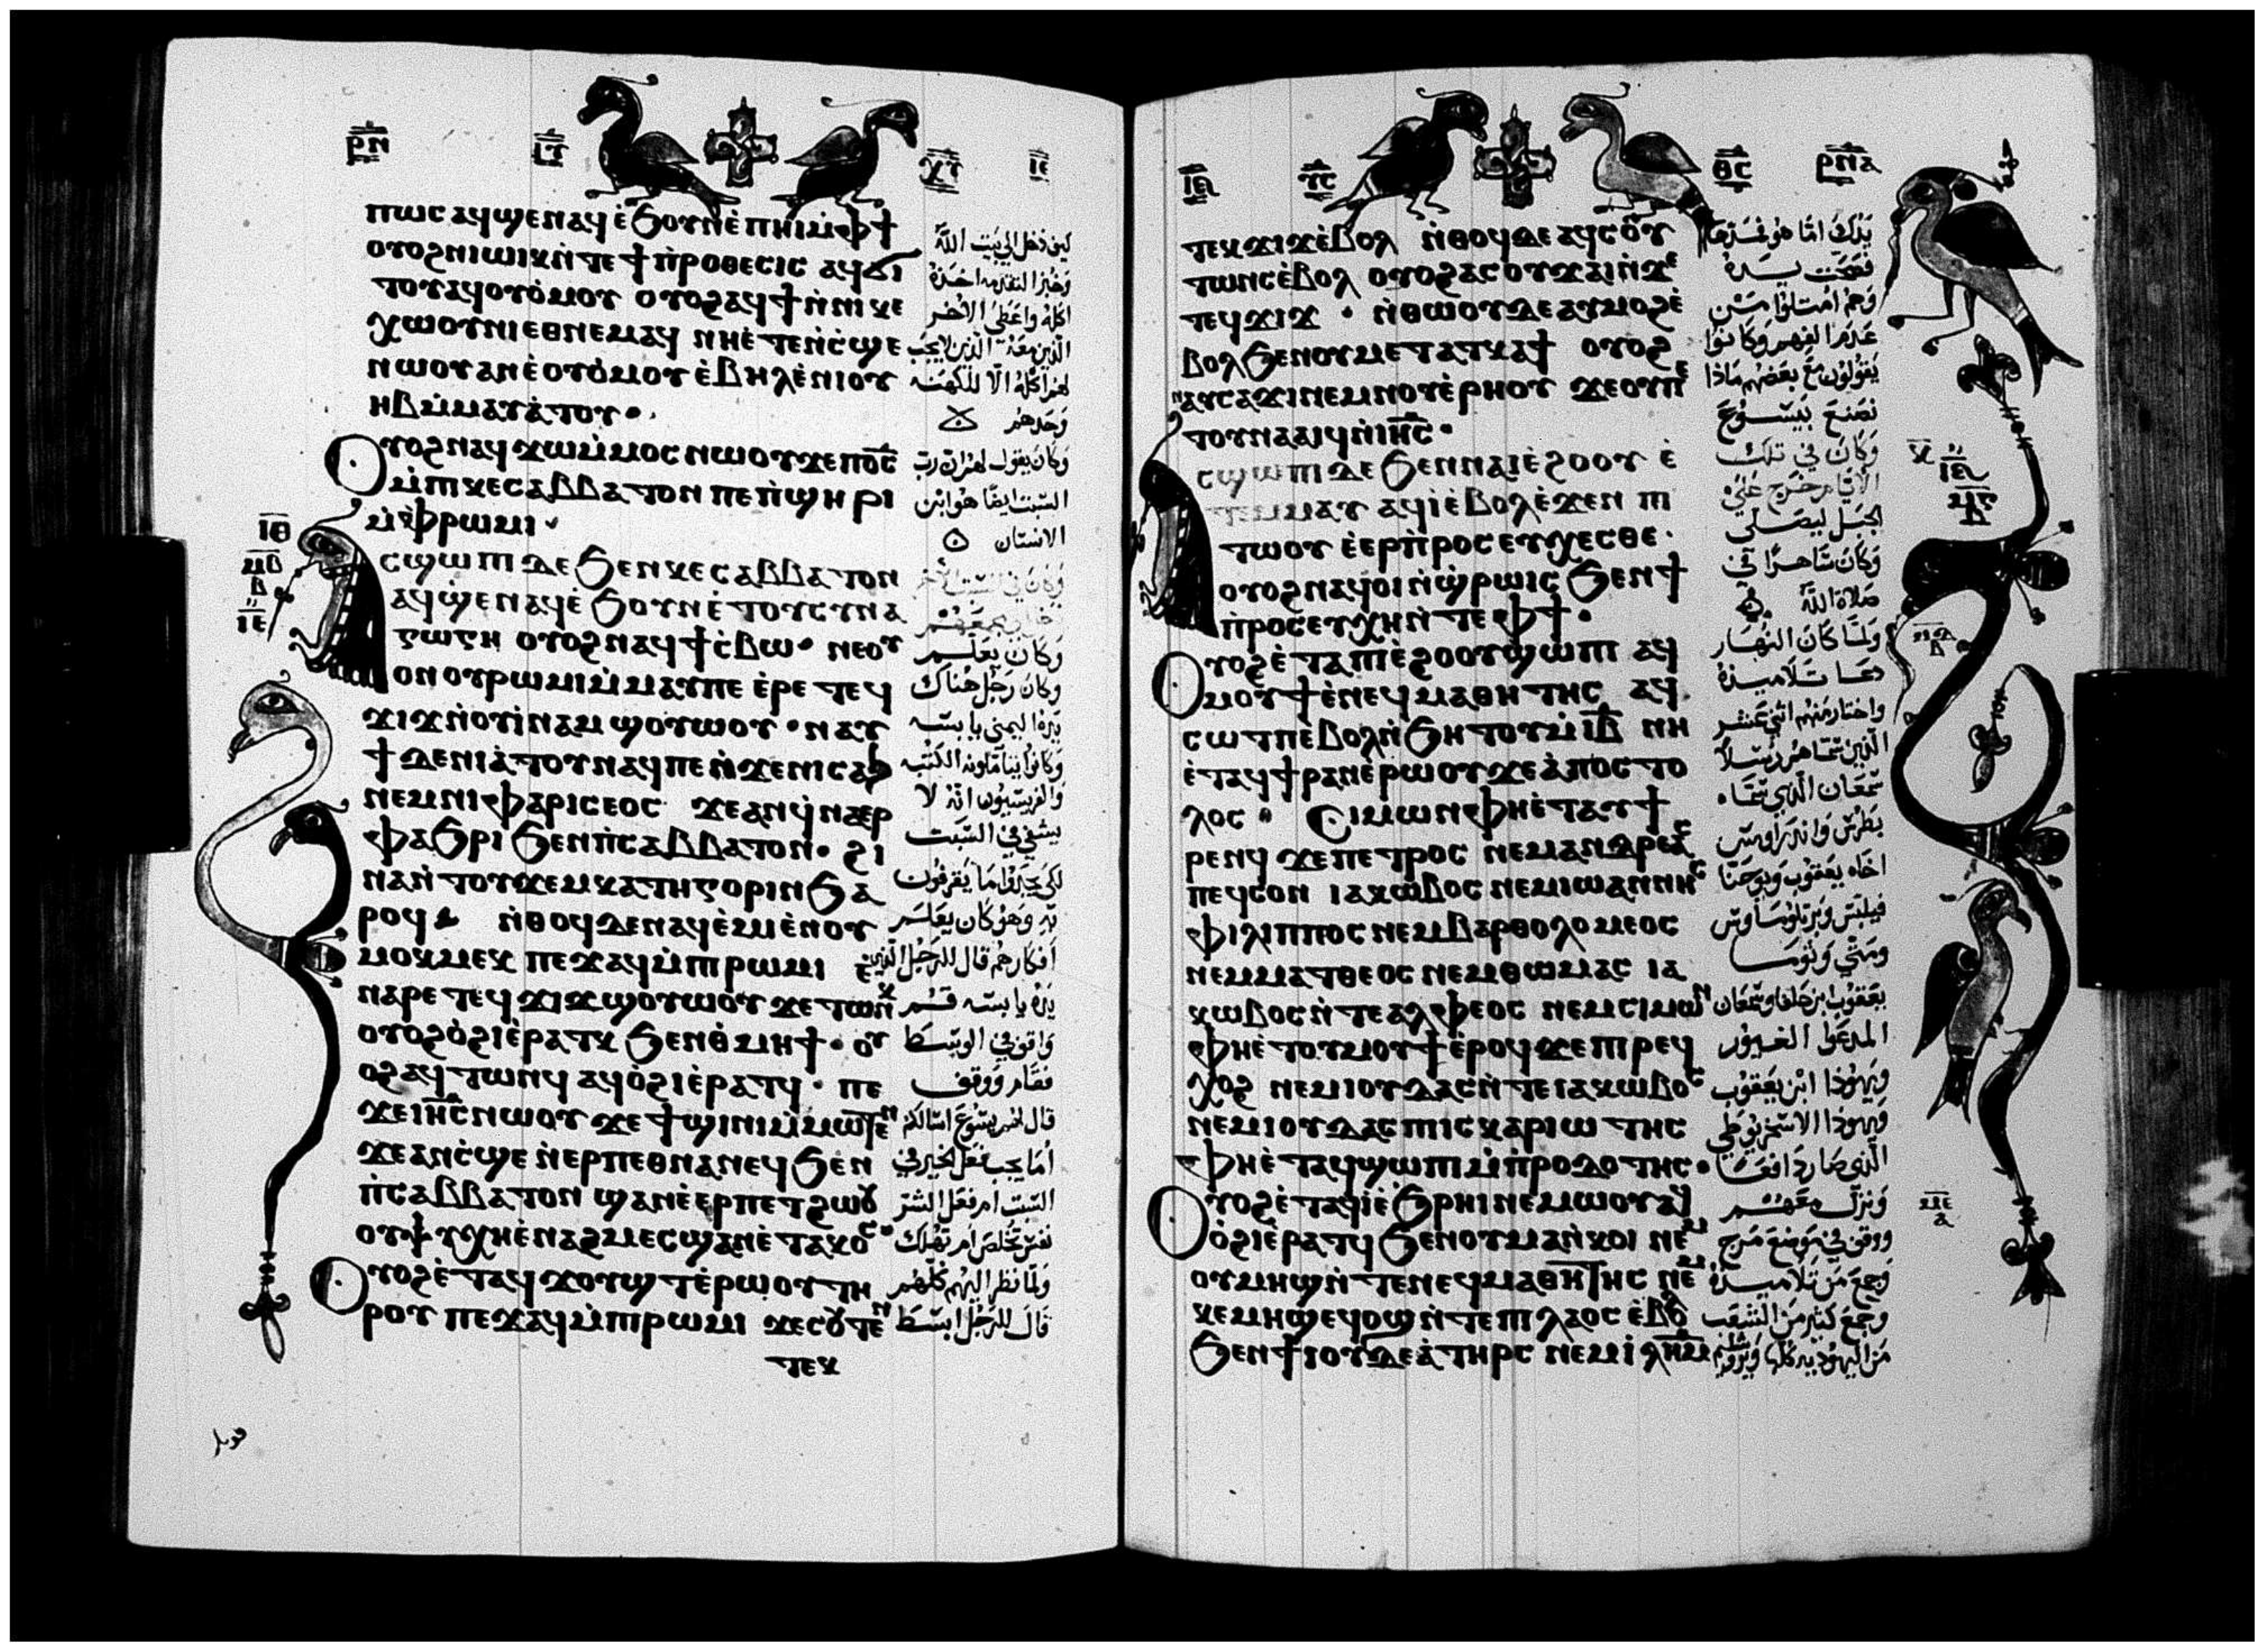 ⲣⲛ
ⲓ̅ⲥ̅ ⲭ̅ⲥ̅
ⲡⲱⲥ ⲁϥϣⲉⲛⲁϥ ⲉ̀ϧⲟⲩⲛ ⲉ̀ⲡⲏⲓ ⲙ̀ⲫϯ
ⲟⲩⲟϩ ⲛⲓⲱⲓⲕ ⲛ̀ⲧⲉ ϯⲡ̀ⲣⲟⲑⲉⲥⲓⲥ ⲁϥϭⲓ
ⲧⲟⲩ ⲁϥⲟⲩⲟ̀ⲙⲟⲩ ⲟⲩⲟϩ ⲁϥϯ ⲛ̀ⲛⲓⲕⲉ
ⲭⲱⲟⲩⲛⲓ ⲉⲑⲛⲉⲙⲁϥ ⲛⲏⲉ̀ⲧⲉⲛ̀ⲥ̀ϣⲉ
ⲛⲱⲟⲩ ⲁⲛ ⲉ̀ⲟⲩⲟ̀ⲙⲟⲩ ⲉ̀ⲃⲏⲗ ⲉ̀ⲛⲓⲟⲩ
ⲏⲃ ⲙ̀ⲙⲁⲩⲁ̀ⲧⲟⲩ
ⲟⲩⲟϩ ⲛⲁϥϫⲱ ⲙ̀ⲙⲟⲥ ⲛⲱⲟⲩ ϫⲉ ⲡⲟ̅ⲥ̅
ⲙ̀ⲡⲓⲕⲉⲥⲁⲃⲃⲁⲧⲟⲛ ⲡⲉ ⲡ̀ϣⲏⲣⲓ
ⲙ̀ⲫⲣⲱⲙⲓ
ⲥϣⲱⲡⲓ ⲇⲉ ϧⲉⲛ ⲕⲉⲥⲁⲃⲃⲁⲧⲟⲛ
ⲁϥϣⲉⲛⲁϥ ⲉ̀ϧⲟⲩⲛ ⲉ̀ⲧⲟⲩⲥⲩⲛⲁ
ⲅⲱⲅⲏ ⲟⲩⲟϩ ⲛⲁϥϯⲥ̀ⲃⲱ ⲛⲉⲟⲩ
ⲟⲛ ⲟⲩⲣⲱⲙⲓ ⲙ̀ⲙⲁⲩ ⲡⲉ ⲉ̀ⲣⲉ ⲧⲉϥ
ϫⲓϫ ⲛ̀ⲟⲩⲓ̀ⲛⲁⲙ ϣⲟⲩⲱⲟⲩ ⲛⲁⲩ
ϯϩⲉⲛⲓⲁ̀ⲧⲟⲩ ⲛⲁϥ ⲡⲉ ⲛ̀ϫⲉ ⲛⲓⲥⲁϧ
ⲛⲉⲙ ⲛⲓⲫⲁⲣⲓⲥⲉⲟⲥ ϫⲉ ⲁⲛ ϥ̀ⲛⲁⲉⲣ
ⲫⲁϧⲣⲓ ϧⲉⲛ ⲡ̀ⲥⲁⲃⲃⲁⲧⲟⲛ ϩⲓ
ⲛⲁ ⲛ̀ⲧⲟⲩϫⲉⲙ ⲕⲁⲧⲏⲅⲟⲣⲓⲛ ϧⲁ
ⲣⲟϥ ⲛ̀ⲑⲟϥ ⲇⲉ ⲛⲁϥⲉ̀ⲙⲓ ⲉ̀ⲛⲟⲩ
ⲙⲟⲕⲙⲉⲕ ⲡⲉϫⲁϥ ⲙ̀ⲡⲓⲣⲱⲙⲓ ⲉ̀
ⲛⲁⲣⲉ ⲧⲉϥϫⲓϫ ϣⲟⲩⲱⲟⲩ ϫⲉ ⲧⲱⲛⲕ
ⲟⲩⲟϩ ⲟ̀ϩⲓ ⲉ̀ⲣⲁⲧⲕ ϧⲉⲛ ⲑ̀ⲙⲏϯ ⲟⲩ
ⲟϩ ⲁϥⲧⲱⲛϥ ⲁϥⲟ̀ϩⲓ ⲉ̀ⲣⲁⲧϥ ⲡⲉ
ϫⲉ ⲓⲏ̅ⲥ̅ ⲛⲱⲟⲩ ϫⲉ ϯϣⲓⲛⲓ ⲙ̀ⲙⲱⲧⲉⲛ
ϫⲉ ⲁⲛ ⲥ̀ϣⲉ ⲛ̀ⲉⲣⲡⲉⲑⲛⲁⲛⲉϥ ϧⲉⲛ
ⲡ̀ⲥⲁⲃⲃⲁⲧⲟⲛ ϣⲁⲛ ⲉ̀ⲉⲣⲡⲉⲧϩⲱⲟⲩ
ⲟⲩⲯⲩⲭⲏ ⲉ̀ⲛⲁϩⲙⲉⲥ ϣⲁⲛ ⲉ̀ⲧⲁⲕⲟⲥ
ⲟⲩⲟϩ ⲉ̀ⲧⲁϥϫⲟⲩϣⲧ ⲉ̀ⲣⲱⲟⲩ ⲧⲏ
ⲣⲟⲩ ⲡⲉϫⲁϥ ⲙ̀ⲡⲓⲣⲱⲙⲓ ϫⲉ ⲥⲟⲩⲧⲉⲛ
ⲧⲉⲕ
كيف دخل الي بيت الله
وخبز التقدمة اخذه
اكله واعطي الاخر
الذين معه الذين لا يجب
لهم اكله الا للكهنة
وحدهم
وكان يقول لهم ان رب
السبت ايضا هو ابن
الانسان
وكان يعلم
وكان رجل هناك
يده اليمني يابسه
والفريسيون انه لا
يشفي في السبت
وهو كان يعلم
افكارهم قال للرجل الذي
يده يابسه قم
واقف في الوسط
فقام ووقف
قال لهم يسوع اسالكم
اما يجب فعل الخير في
السبت ام فعل الشر
نفس تخلص ام تهلك
ولما نظر اليهم كلهم
قال للرجل ابسط
ⲓⲑ
ⲙⲃ
ⲃ
ⲓⲉ
ⲣⲛⲁ
ⲩ̅ⲥ̅ ⲑ̅ⲥ̅
ⲧⲉⲕϫⲓϫ ⲉ̀ⲃⲟⲗ ⲛ̀ⲑⲟϥ ⲇⲉ ⲁϥⲥⲟⲩ
ⲧⲱⲛⲥ ⲉ̀ⲃⲟⲗ ⲟⲩⲟϩ ⲁⲥⲟⲩϫⲁⲓ ⲛ̀ϫⲉ
ⲧⲉϥϫⲓϫ ⲛ̀ⲑⲱⲟⲩ ⲇⲉ ⲁⲩⲙⲟϩ ⲉ̀
ⲃⲟⲗ ϧⲉⲛ ⲟⲩⲙⲉⲧⲁⲧⲕⲁϯ ⲟⲩⲟϩ
ⲛⲁⲩⲥⲁϫⲓ ⲛⲉⲙ ⲛⲟⲩⲉ̀ⲣⲏⲟⲩ ϫⲉ ⲟⲩ ⲡⲉ
ⲧⲟⲩⲛⲁⲁⲓϥ ⲛ̀ⲓⲏ̅ⲥ̅
ⲥϣⲱⲡⲓ ⲇⲉ ϧⲉⲛ ⲛⲁⲓⲉ̀ϩⲟⲟⲩ ⲉ̀
ⲧⲉⲙⲙⲁⲩ ⲁϥⲓ̀ ⲉ̀ⲃⲟⲗ ⲉ̀ϫⲉⲛ ⲡⲓ
ⲧⲱⲟⲩ ⲉ̀ⲉⲣⲡ̀ⲣⲟⲥⲉⲩⲭⲉⲥⲑⲉ
ⲟⲩⲟϩ ⲛⲁϥⲟⲓ ⲛ̀ϣ̀ⲣⲱⲓⲥ ϧⲉⲛ ϯ
ⲡ̀ⲣⲟⲥⲉⲩⲭⲏ ⲛ̀ⲧⲉ ⲫϯ
ⲟⲩⲟϩ ⲉ̀ⲧⲁ ⲡⲓⲉ̀ϩⲟⲟⲩ ϣⲱⲡⲓ ⲁϥ
ⲙⲟⲩϯ ⲉ̀ⲛⲉϥⲙⲁⲑⲏⲧⲏⲥ ⲁϥ
ⲥⲱⲧⲡ ⲉ̀ⲃⲟⲗ ⲛ̀ϧⲏⲧⲟⲩ ⲙ̀ⲓ̅ⲃ̅ ⲛⲏ
ⲉ̀ⲧⲁϥϯⲣⲁⲛ ⲉ̀ⲣⲱⲟⲩ ϫⲉ ⲁ̀ⲡⲟⲥⲧⲟ
ⲗⲟⲥ ⲥⲓⲙⲱⲛ ⲫⲏⲉ̀ⲧⲁⲩϯ
ⲣⲉⲛϥ ϫⲉ ⲡⲉⲧⲣⲟⲥ ⲛⲉⲙ ⲁⲛⲇⲣⲉⲁⲥ
ⲡⲉϥⲥⲟⲛ ⲓⲁⲕⲱⲃⲟⲥ ⲛⲉⲙ ⲓⲱⲁⲛⲛⲏⲥ
ⲫⲓⲗⲓⲡⲡⲟⲥ ⲛⲉⲙ ⲃⲁⲣⲑⲟⲗⲟⲙⲉⲟⲥ
ⲛⲉⲙ ⲙⲁⲧⲑⲉⲟⲥ ⲛⲉⲙ ⲑⲱⲙⲁⲥ ⲓⲁ
ⲕⲱⲃⲟⲥ ⲛ̀ⲧⲉ ⲁⲗⲫⲉⲟⲥ ⲛⲉⲙ ⲥⲓⲙⲱⲛ
ⲫⲏⲉ̀ⲧⲟⲩⲙⲟⲩϯ ⲉ̀ⲣⲟϥ ϫⲉ ⲡⲓⲣⲉϥ
ⲭⲟϩ ⲛⲉⲙ ⲓⲟⲩⲇⲁⲥ ⲛ̀ⲧⲉ ⲓⲁⲕⲱⲃⲟⲥ
ⲛⲉⲙ ⲓⲟⲩⲇⲁⲥ ⲡⲓⲥⲕⲁⲣⲓⲱⲧⲏⲥ
ⲫⲏⲉ̀ⲧⲁϥϣⲱⲡⲓ ⲙ̀ⲡ̀ⲣⲟⲇⲟⲧⲏⲥ
ⲟⲩⲟϩ ⲉ̀ⲧⲁϥⲓ̀ ⲉ̀ϧⲣⲏⲓ ⲛⲉⲙⲱⲟⲩ ⲁϥ
ⲟ̀ϩⲓ ⲉ̀ⲣⲁⲧϥ ϧⲉⲛ ⲟⲩⲙⲁ ⲛ̀ⲕⲟⲓ ⲛⲉⲙ
ⲟⲩⲙⲏϣ ⲛ̀ⲧⲉ ⲛⲉϥⲙⲁⲑⲏⲧⲏⲥ ⲛⲉⲙ
ⲕⲉⲙⲏϣ ⲉϥⲟϣ ⲛ̀ⲧⲉ ⲡⲓⲗⲁⲟⲥ ⲉ̀ⲃⲟⲗ
ϧⲉⲛ ϯⲓⲟⲩⲇⲉⲁ̀ ⲧⲏⲣⲥ ⲛⲉⲙ ⲓ̀ⲗⲏ̅ⲙ̅
يدك اما هو فمدها
فصحت يده
وهم امتلوا من
عدم الفهم وكانوا
يقولون مع بعضهم ماذا
نصنع بيسوع
وكان في تلك
الايام خرج علي
الجبل ليصلي
وكان ساهرا في
صلاة الله
ولما كان النهار
دعا تلاميذه
واختار منهم اثني عشر
الذين سماهم رسلا
سمعان الذي سماه
بطرس واندراوس
اخاه يعقوب ويوحنا
فيلبس وبرتلوماوس
ومتي وتوما
يعقوب بن حلفا وسمعان
المدعوا الغيور
ويهوذا ابن يعقوب
ويهوذا الاسخريوطي
الذي صار دافعا
ونزل معهم
ووقف في موضع مرج
وجمع من تلاميذه
وجمع كثير من الشعب
من اليهوديه كلها